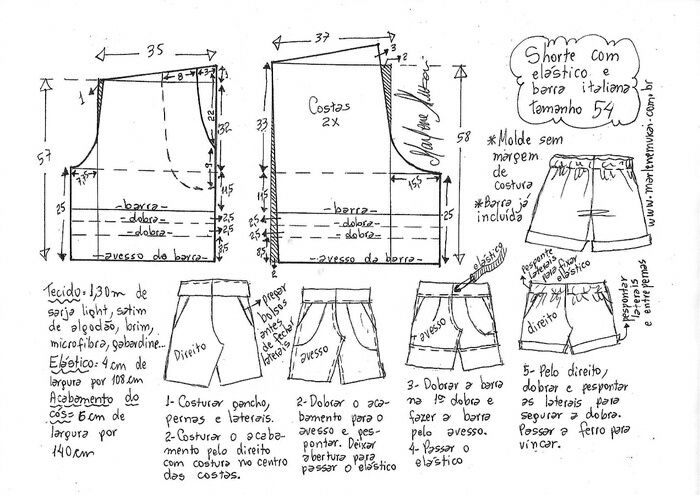 Shorte com
elástico e
barra italiana
tamanho 54
www.marlenemukai.com.br
35
8
3
1
1
22
32
9
57
7,5
11,5
25
barra
dobra
dobra
avesso da barra
2,5
2,5
37
3
2
Costas
2X
33
58
15,5
11,5
25
barra
dobra
dobra
avesso da barra
2,5
2,5
8,5
2
Marlene Mukai
*Molde sem
margem
de
costura
*Barra já
incluída
Tecido = 1,30m de
sarja light, satim
de algodão, brim,
microfibra, gabardine...
Elástico: 4 cm de
largura por 108 cm
Acabamento do
cós = 6 cm de
largura por
140 cm
Direito
Pregar
bolsos
antes
de fechar
laterais
1- Costurar gancho,
pernas e laterais.
2- Costurar o acaba-
mento pelo direito
com costura no centro
das costas.
avesso
2- Dobrar o aca-
bamento para o
avesso e pes-
pontar. Deixar
abertura para
passar o elástico
elástico
avesso
3- Dobrar a barra
na 1ª dobra e
fazer a barra
pelo avesso.
4- Passar o
elástico
pesponte
laterais
para fixar
elástico
direito
pespontar
laterais
e entrepernas
5- Pelo direito,
dobrar e pespontar
as laterais para
segurar a dobra.
Passar a ferro para
vincar.